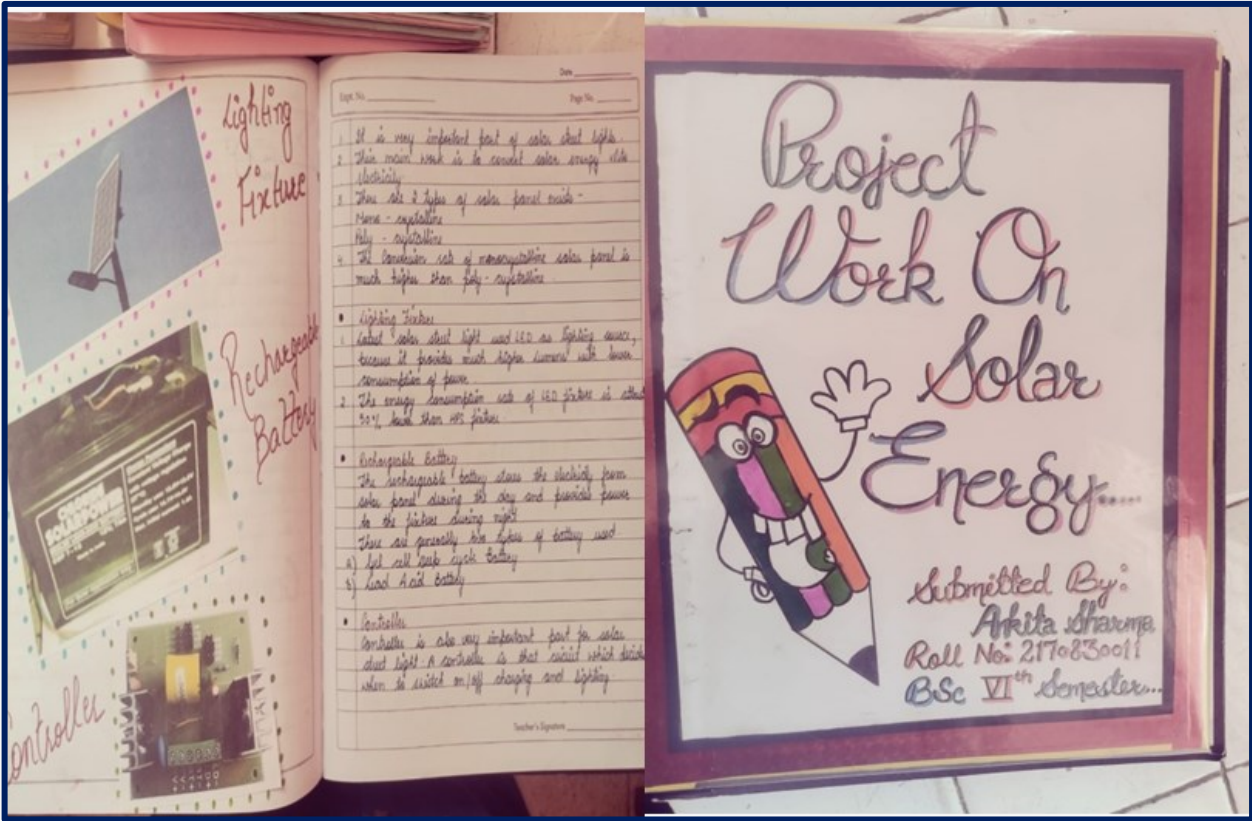 Lighting
Fixture
Rechargeable
Battery
SOLARPOWER
Controller
Date
Expt. No.
Page No.
1. It is very important part of solar street lights.
2. Their main work is to convert solar energy into
electricity.
3. There are 2 types of solar panel exists -
Mono - crystalline
Poly - crystalline
4. The Conversion rate of monocrystalline solar panel is
much higher than poly - crystalline.
• Lighting Fixture
1. Latest solar street light used LED as lighting source,
because it provides much higher lumens with lower
consumption of power.
2. The energy consumption rate of LED fixture is
50% lower than HPS fixture.
• Rechargeable Battery
The rechargeable battery stores the electricity from
solar panel during the day and provides power
to the fixture during night.
There are generally two types of battery used.
a) Gel cell deep cycle Battery
b) Lead Acid Battery
• Controller
Controller is also very important part for solar
street light. A controller is that circuit which
when to switch on/off charging and lighting.
Teacher's Signature
Project
Work On
Solar
Energy.....
Submitted By:
Ankita Sharma
Roll No: 2170830011
BSc VIth Semester...